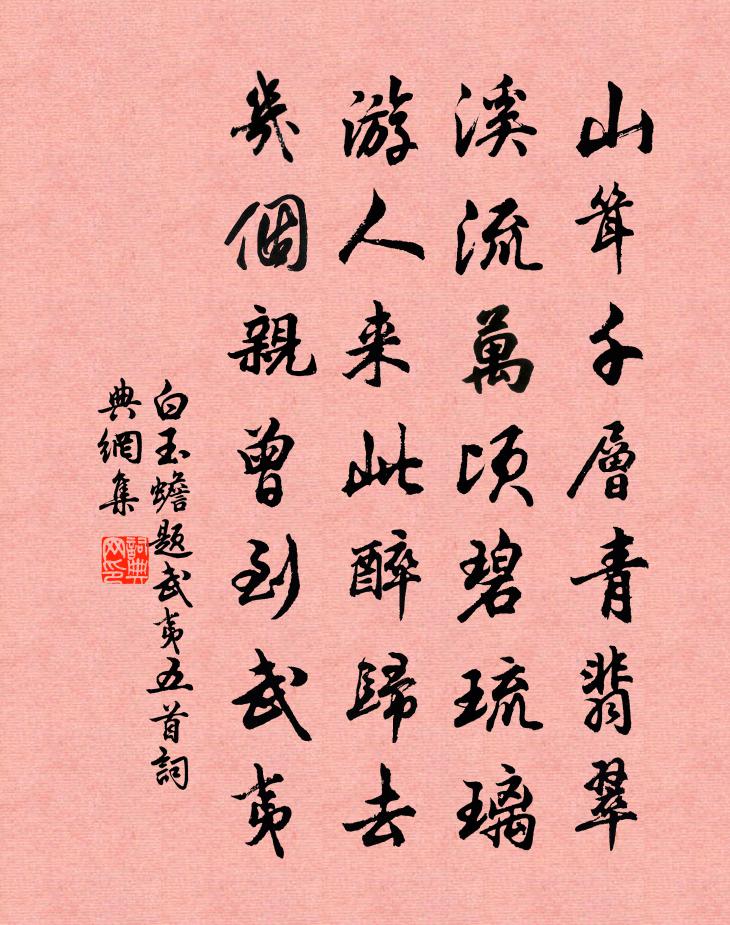 山耸千層青翡翠
溪流萬頃碧琉璃
游人来此醉歸去
幾個親曾到武夷
白玉蟾题武夷五首詞
典網集
詞典
网印